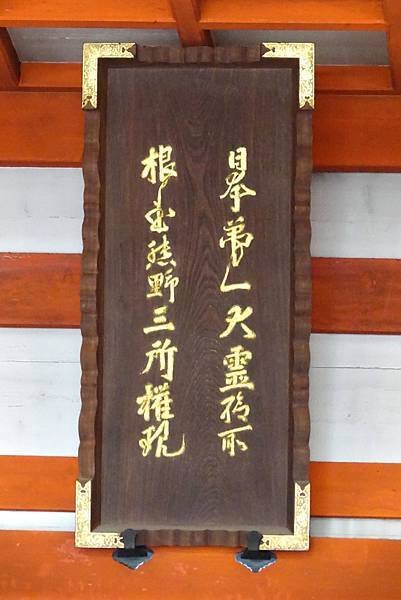 日本第一大霊験所
根本熊野三所権現